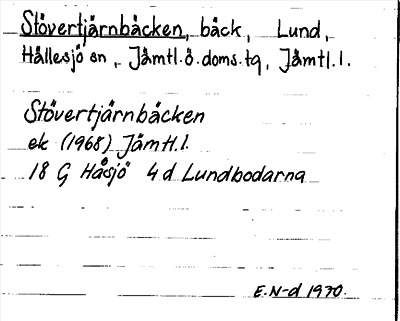 Stövertjärnbäcken, bäck, Lund,
Hällesjö sn, Jämtl.ö.doms.tg, Jämtl.l.
Stövertjärnbäcken
ek (1968) Jämtl.l.
18 G Håsjö 4d Lundbodarna
E.N-d 1970.